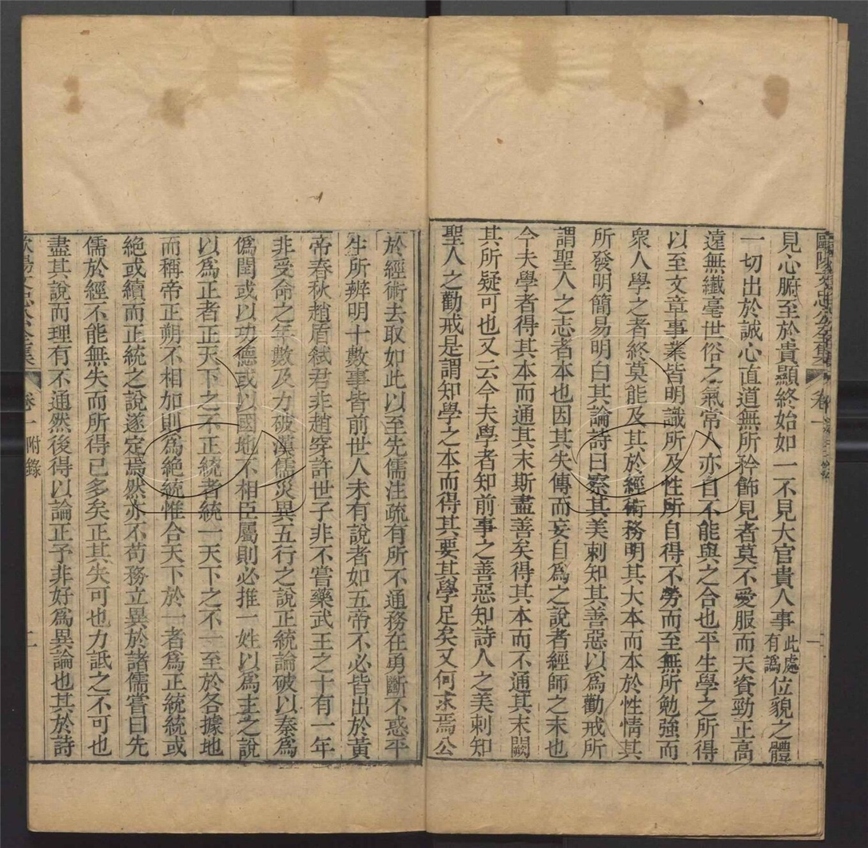 見心腑至於貴顯終始如一不見大官貴人事此處有譌位貌之體
一切出於誠心直道無所矜飾見者莫不愛服而天資勁正高
遠無纖毫世俗之氣常人亦自不能與之合也平生學之所得
以至文章事業皆明識所及性所自得不勞而至無所勉強而
衆人學之者終莫能及其於經術務明其大本而本於性情其
所發明簡易明白其論詩曰察其美刺知其善惡以爲勸戒所
謂聖人之志者本也因其失傳而妄自爲之說者經師之末也
今夫學者得其本而通其末斯盡善矣得其本而不通其末闕
其所疑可也又云今夫學者知前事之善惡知詩人之美刺知
聖人之勸戒是謂知學之本而得其要其學足矣又何求焉公
於經術去取如此以至先儒注疏有所不通務在勇斷不惑平
生所辨明十數事皆前世人未有說者如五帝不必皆出於黃
帝春秋趙盾弑君非趙穿許世子非不嘗藥武王之十有一年
非受命之年數及力破漢儒災異五行之說正統論破以秦爲
僞閏或以功德或以國地不相臣屬則必推一姓以爲主之說
以爲正者正天下之不正統者統一天下之不一至於各據地
而稱帝正朔不相加則爲絶統惟合天下於一者爲正統統或
絶或續而正統之說遂定焉然亦不苟務立異於諸儒嘗曰先
儒於經不能無失而所得已多矣正其失可也力詆之不可也
盡其說而理有不通然後得以論正予非好爲異論也其於詩
歐陽文忠公全集
卷一 附錄
二